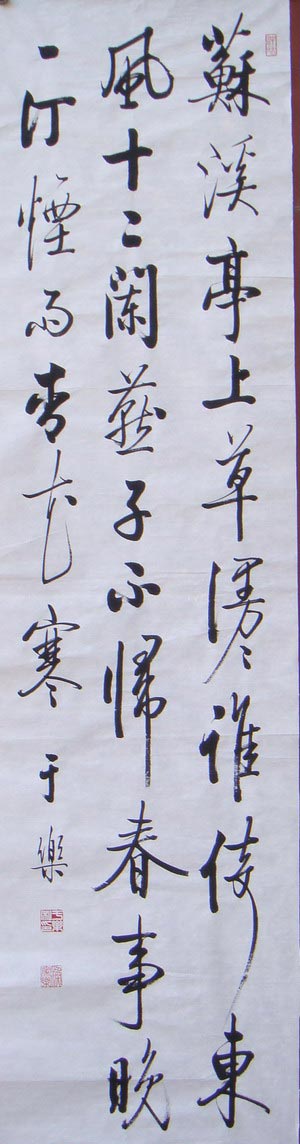 蘇溪亭上草漫〻誰倚東
風十二闌燕子不歸春事晚
一汀煙雨杏花寒 于樂